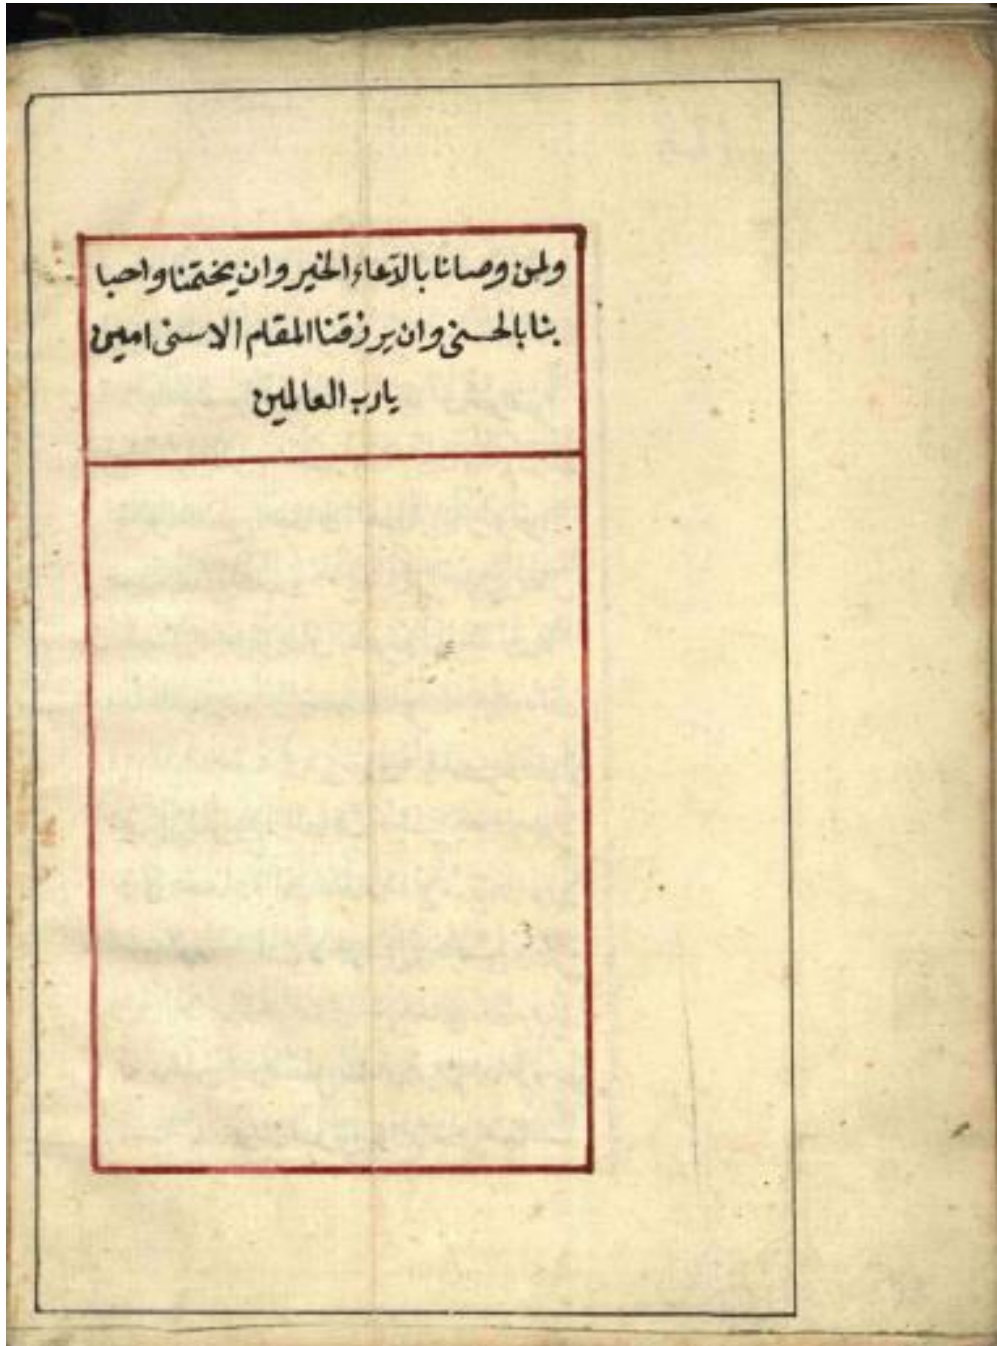 ولمن وصانا بالدعاء الخير وان يختمنا واحبا
بنا بالحسنى وان يرزقنا المقام الاسنى امين
يارب العالمين